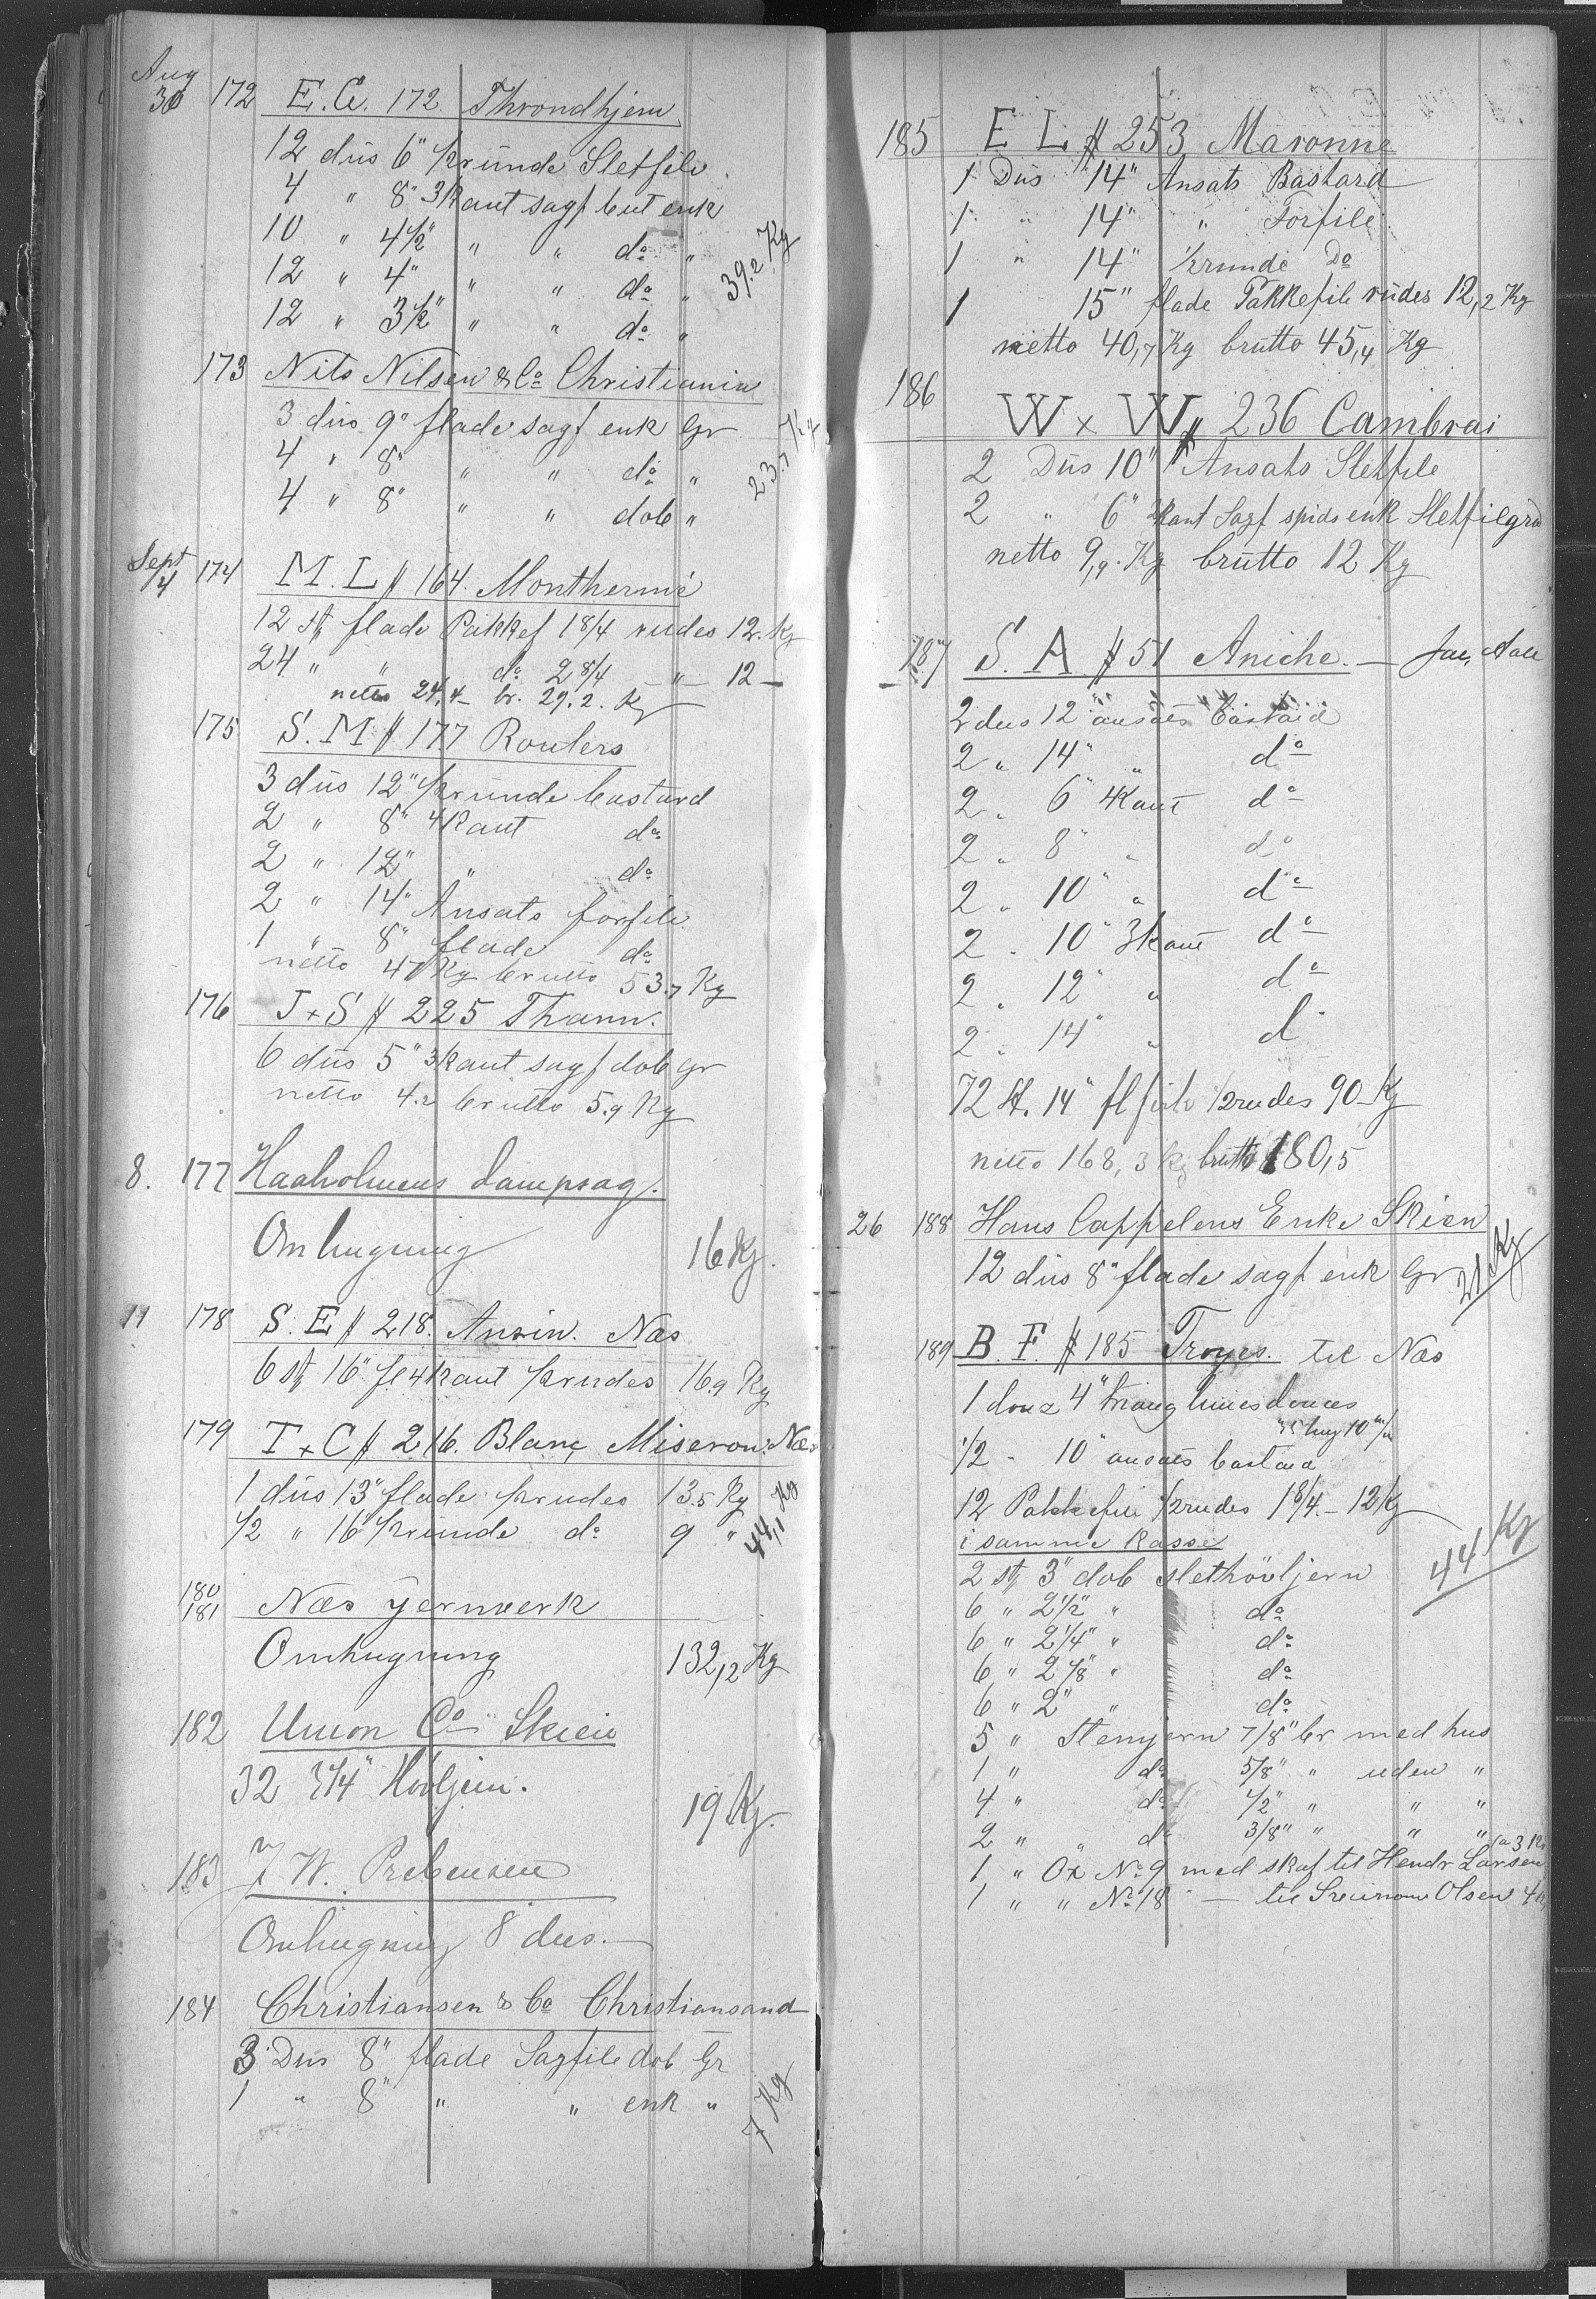 Aug
30 172 E. C. 172. Throndhjem
12 dus 6" ½runde Sletfile
4 " 8" 3kant sagf but enk
10 " 4½" " " do "
12 " 4" " " do "
12 " 3½" " " do "
39.2 Kg
173 Nils Nilsen & Co Christiania
3 dus 9" flade sagf enk Gr
4 " 8" " " do "
4 " 8" " " dob "
23.7 Kg
Sept
4 174 M. L # 164. Monthermé
12 st flade Pakkef 18/4 rudes 12. Kg
24 " " do 28/4 " 12 —
netto 24.4 — br. 29.2. Kg
175 S. M # 177 Roulers
3 dus 12" ½runde bastard
2 " 8" 4kant do
2 " 12" " do
2 " 14" Ansats forfile
1 " 8" flade do
netto 47 Kg brutto 53.7 Kg
176 J + S # 225 Thann.
6 dus 5" 3kant sagf dob gr
netto 4.2 brutto 5.9 Kg
8. 177 Haaholmens dampsag.
Omhugning 16 Kg.
11 178 S. E # 218. Anzin. Næs
6 st 16" fl 4kant ½rudes 16.9 Kg
179 T + C # 216. Blanc Miseron. Næs
1 dus 13" flade ½rudes 13.5 Kg
½ " 16" ½runde do 9 "
44,1 Kg
180
181 Næs jernverk
Omhugning 132,12 Kg
182 Union Co Skien
32 3¼" Hövljern.
19 Kg.
183 J W. Prebensen
Omhugning 8 dus. —
184 Christiansen & Co Christiansand
3 Dus 8" flade Sagfile dob Gr
1 " 8" " " enk "
7 Kg
185 E L # 253 Maronne
1 Dus 14" Ansats Bastard
1 " 14" " Forfile
1 " 14" ½runde Do
1 15" flade Pakkefile rudes 12,2 Kg
netto 40,7 Kg brutto 45,4 Kg
186 W × W # 236 Cambrai
2 Dus 10" Ansats Sletfile
2 " 6" kant Sagf spids enk Sletfilgrd
netto 9,9. Kg brutto 12 Kg
187 S. A # 51 Aniche. —
2 dus 12" ansats bastard
2 " 14" " do
2 " 6" 4kant do
2 " 8" " do
2 " 10" " do
2 " 10" 3kant do
2 " 12" " do
2 " 14" " d
72 st. 14" fl file ½rudes 90 Kg
netto 168,3 Kg brutto 180,5
26 188 Hans Cappelens Enke Skien
12 dus 8" flade sagf enk Gr
21 Kg
189 B. F. # 185 Troyes. til Næs
1 douz 4" triang limes douces
½ - 10" ansats bastard
12 Pakkefile ½rudes 18/4. — 12 Kg
i samme Kasse
2 st 3" dob slethövljern
6 " 2½" " do
6 " 2¼" " do
6 " 2⅛" " do
6 " 2" " do
44 Kg
5 " Stemjern 7/8" br med hus
1 " do 5/8" " uden "
4 " do 1/2" " " "
2 " " do 3/8" " " "
1 " Ox No 9 med skaf til Hendr Larsen
1 " " No 18 — til Olsen